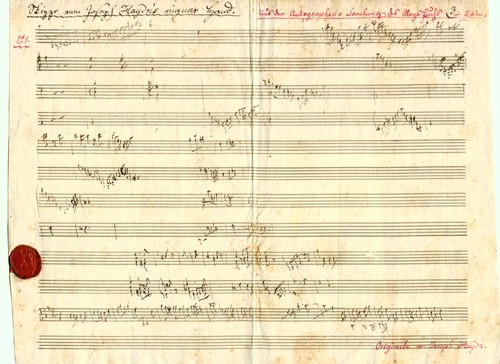 Skizze von Joseph Haydns eigener Hand.
Aus der Autographen Samlung des Aloys Fuchs
No 1.
Originale v. Joseph Haydn.